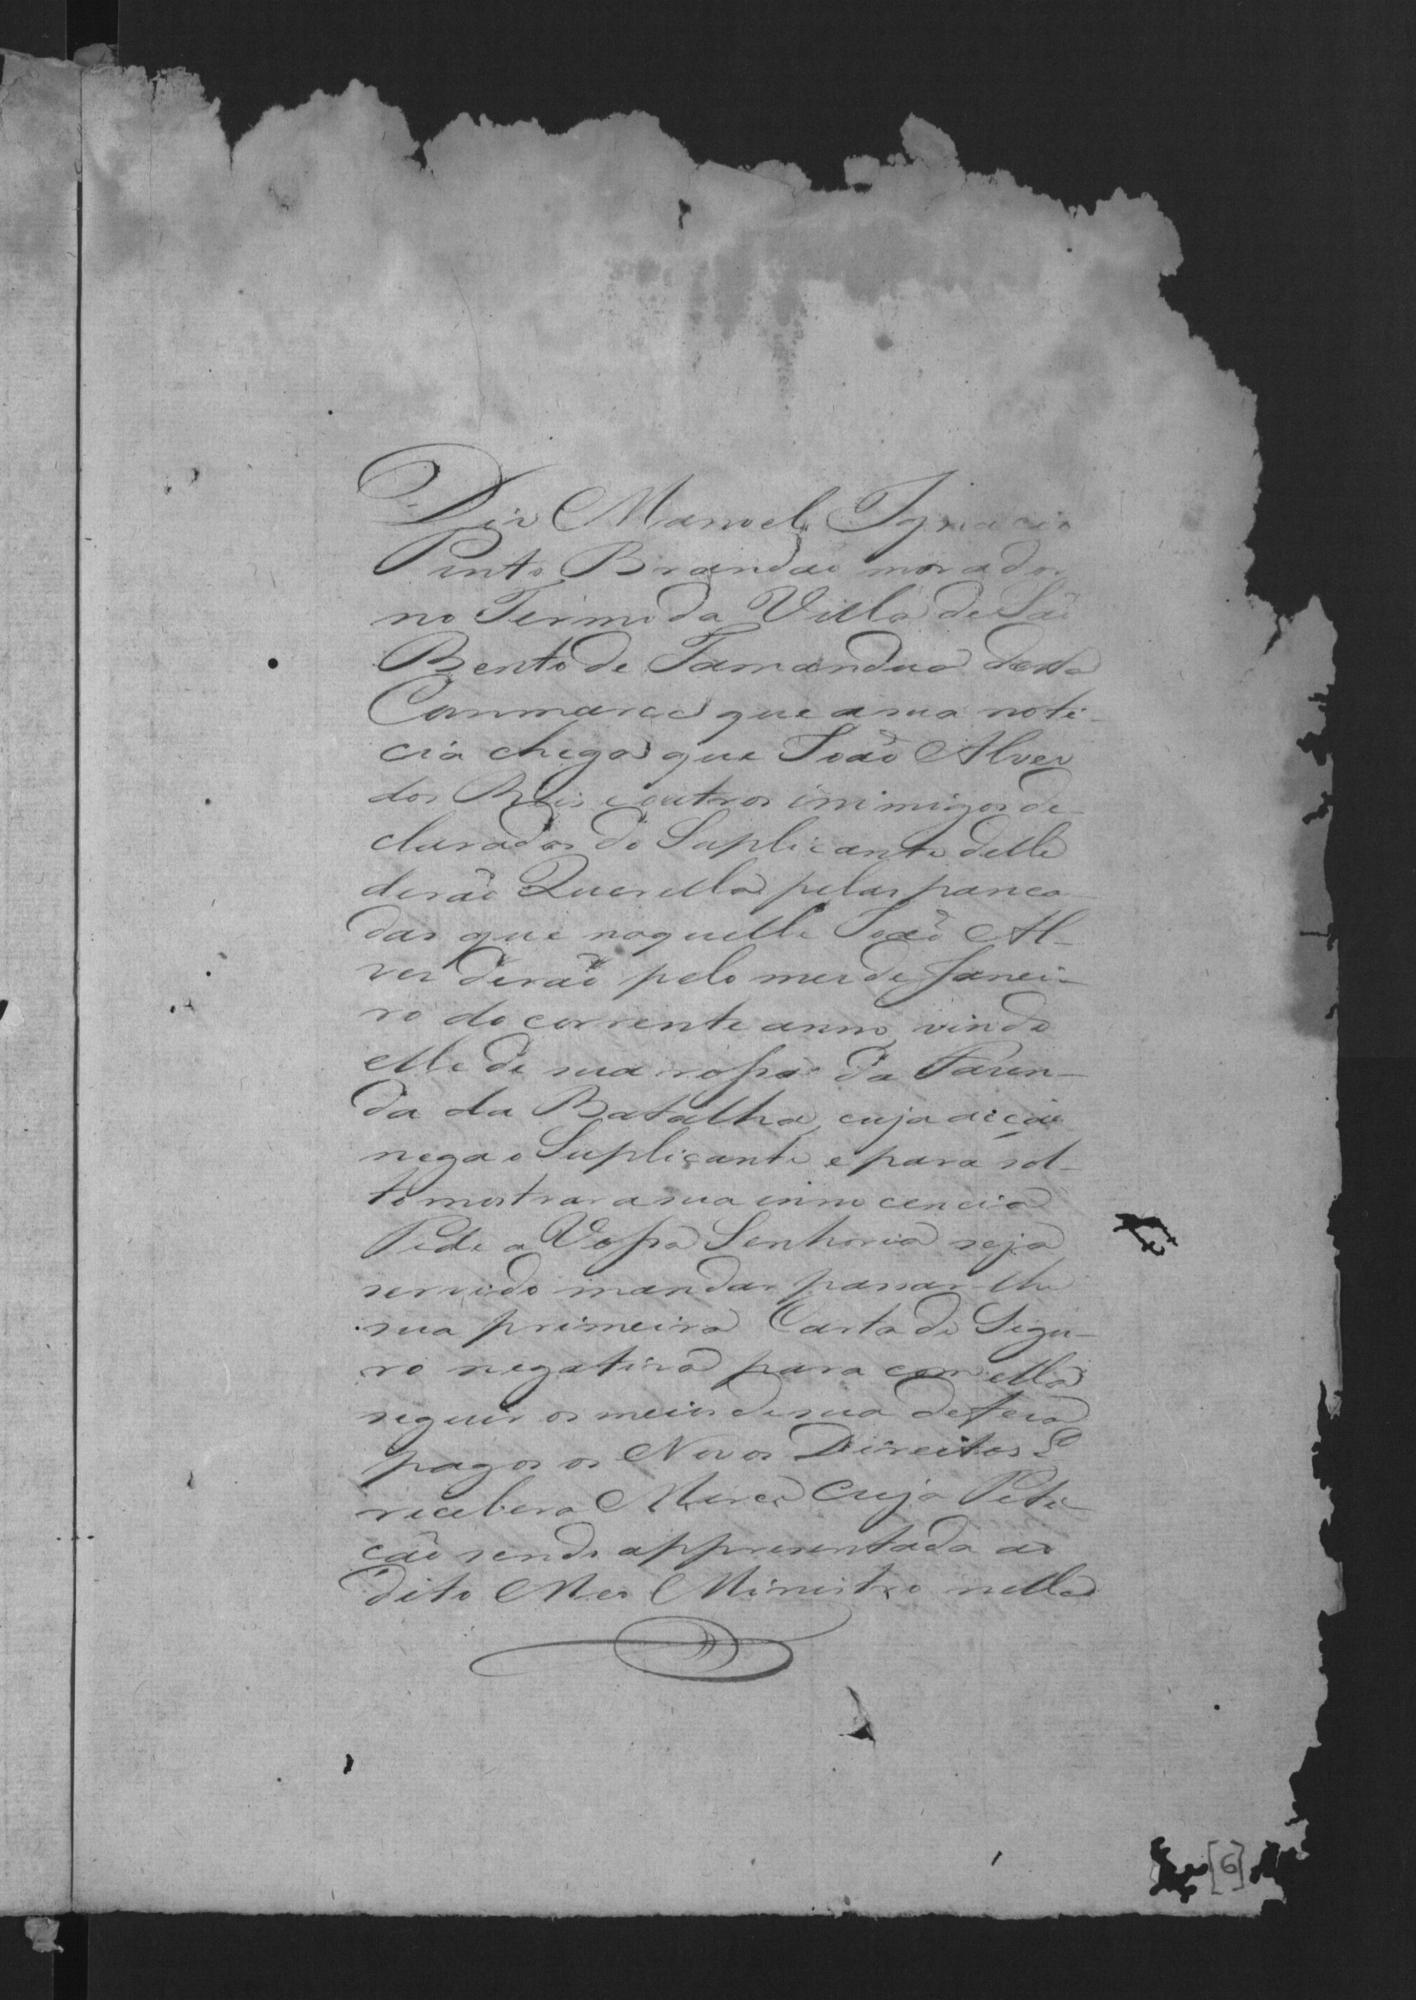 Diz Manoel Ignacio
Pinto Brandaõ morador
no Termo da Villa de Saõ
Bento de Tamandua desta
Commarca que a sua noti-
cia chega que Joaõ Alves
dos Reis e outros inimigos de-
clarados do Suplicante delle
deraõ Querella pelas panca
das que naquelle Joaõ Al-
ves deraõ pelo mes de Janei-
ro do corrente anno, vindo
elle de sua rossa da Fazen-
da da Batalha, cuja acçaõ
nega o Suplicante e para sol-
to mostrar a sua innocencia
Pede a Vossa Senhoria seja
servido mandar passar-lhe
sua primeira Carta de Segu-
ro negativa para com ella
seguir os meios de sua defeza
pagos os Novos Direitos E
recebera Merce Cuja Peti-
caõ sendo appresentada ao
dito Meo Ministro nella
[6]